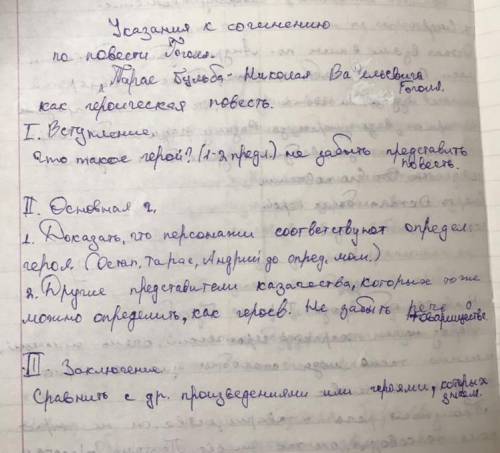 Указания к сочинению
по повести Гоголя.
"Тарас Бульба" - Николая Васильевича Гоголя.
как героическая повесть.
I. Вступление.
Что такое герой? (1-2 предл.) не забыть представить повесть.
II. Основная ч.
1. Доказать, что персонажи соответствуют определ.
героя. (Остап, Тарас, Андрий до опред. мом.)
2. Другие представители казачества, которых тоже
можно определить, как героев. Не забыть речь о товариществе.
III Заключение.
Сравнить с др. произведениями или героями, которых знаем.